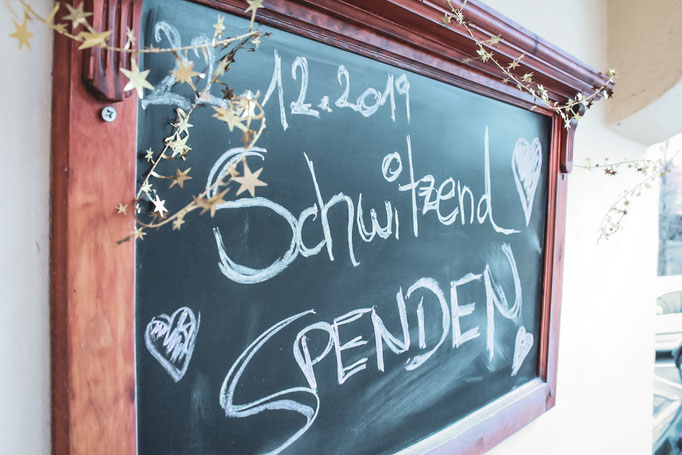 22.12.2019
Schwitzend
SPENDEN